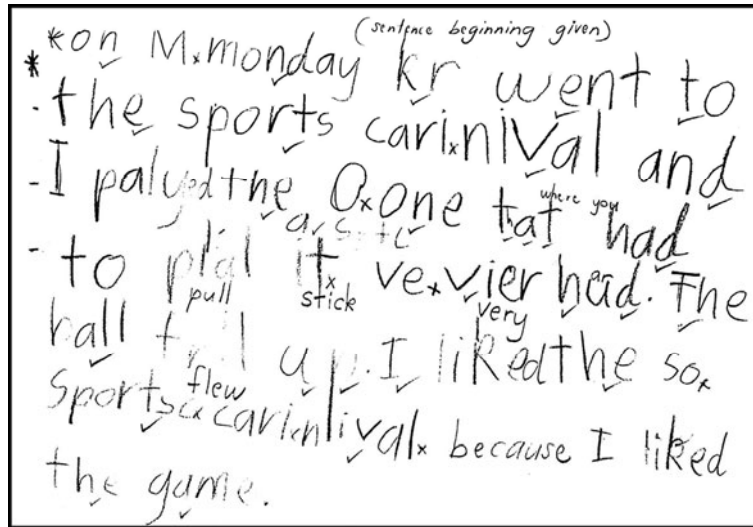 (sentence beginning given)
*on Mxmonday kr went to
* the sports carixnival and
- I palyed the Oxone that where you had
- to plal it vexvier head. The
pull stick very
ball up. I liked the sox
flew
sports cx carixnlivalx because I liked
the game.